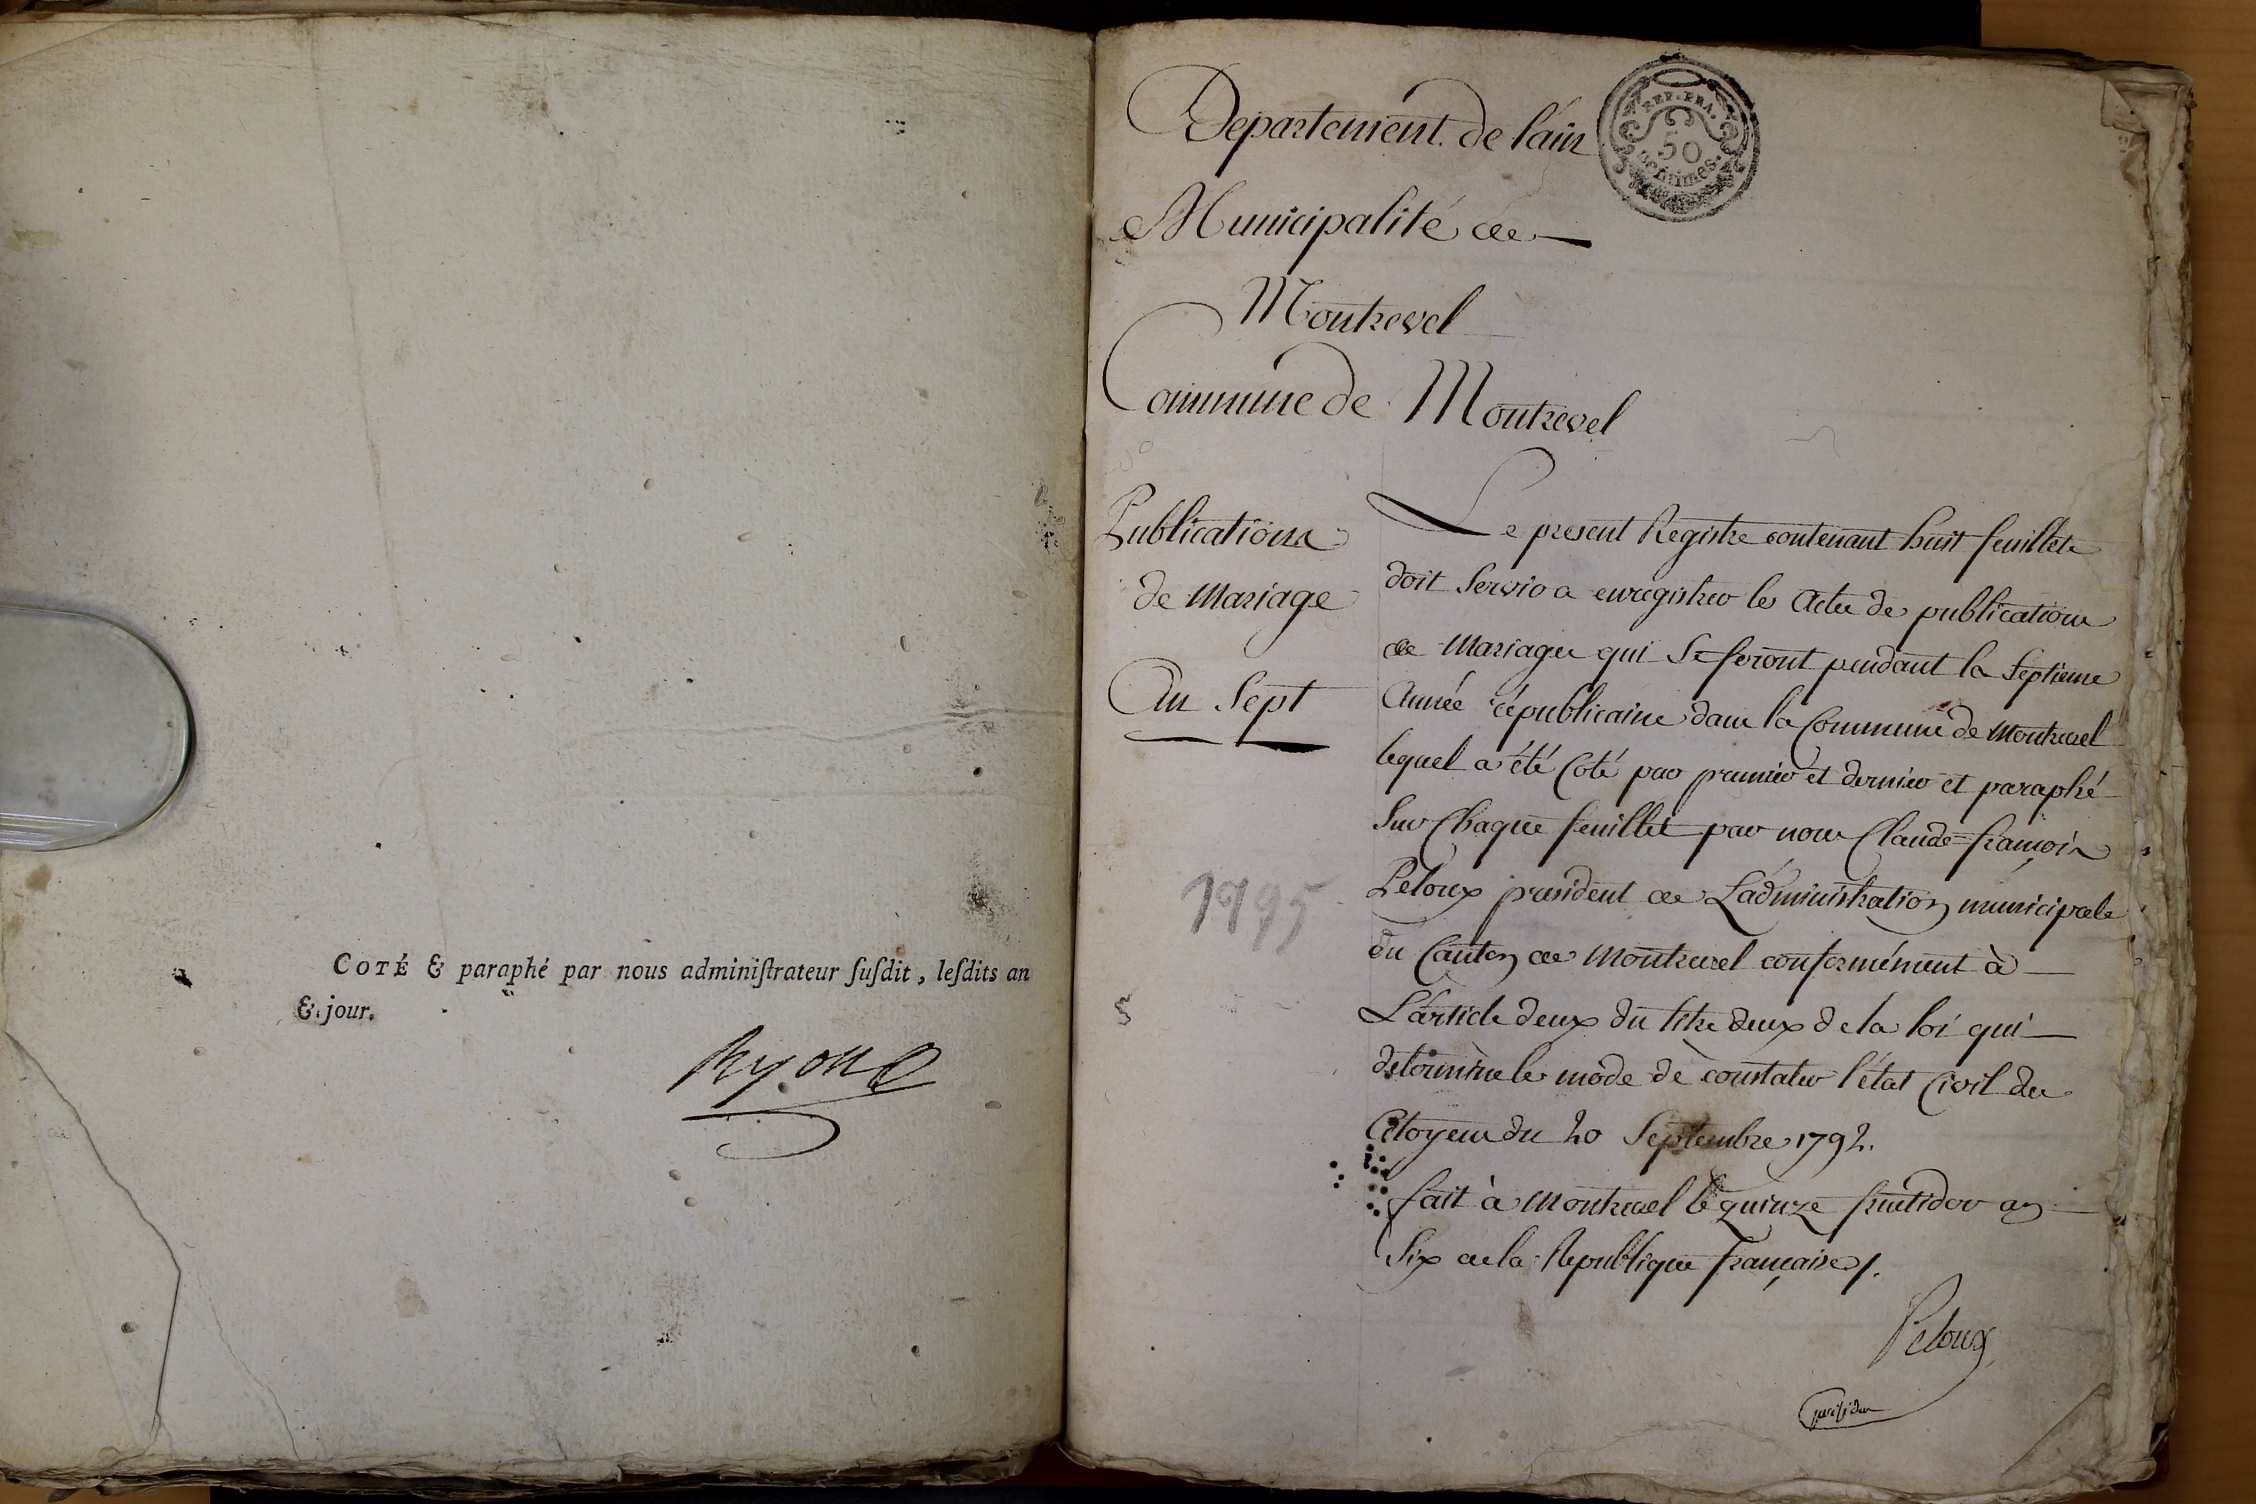 COTÉ & paraphé par nous adminiſtrateur ſuſdit, leſdits an
& jour.
Departement de l'ain
REP. FRA.
50
centimes.
Municipalité de
Montrevel
Commune de Montrevel
Publications
de Mariage
An Sept
1795
Le present Registre contenant huit feuillets
doit Servir a enregistrer les Actes de publications
de Mariages qui Se feront pendant la Septieme
Année républicaine dans la Commune de Montrevel
lequel a été Coté par premier et dernier et paraphé
Sur Chaque feuillet par nous Claude=françois
Peloux president de L'administration municipale
du Canton de Montrevel conformément à
L'article deux du titre deux de la loi qui
determine le mode de constater l'état Civil des
Citoyens du 20 Septembre 1792.
fait à Montrevel le quinze fructidor an
Six de la Republique française /.
Peloux